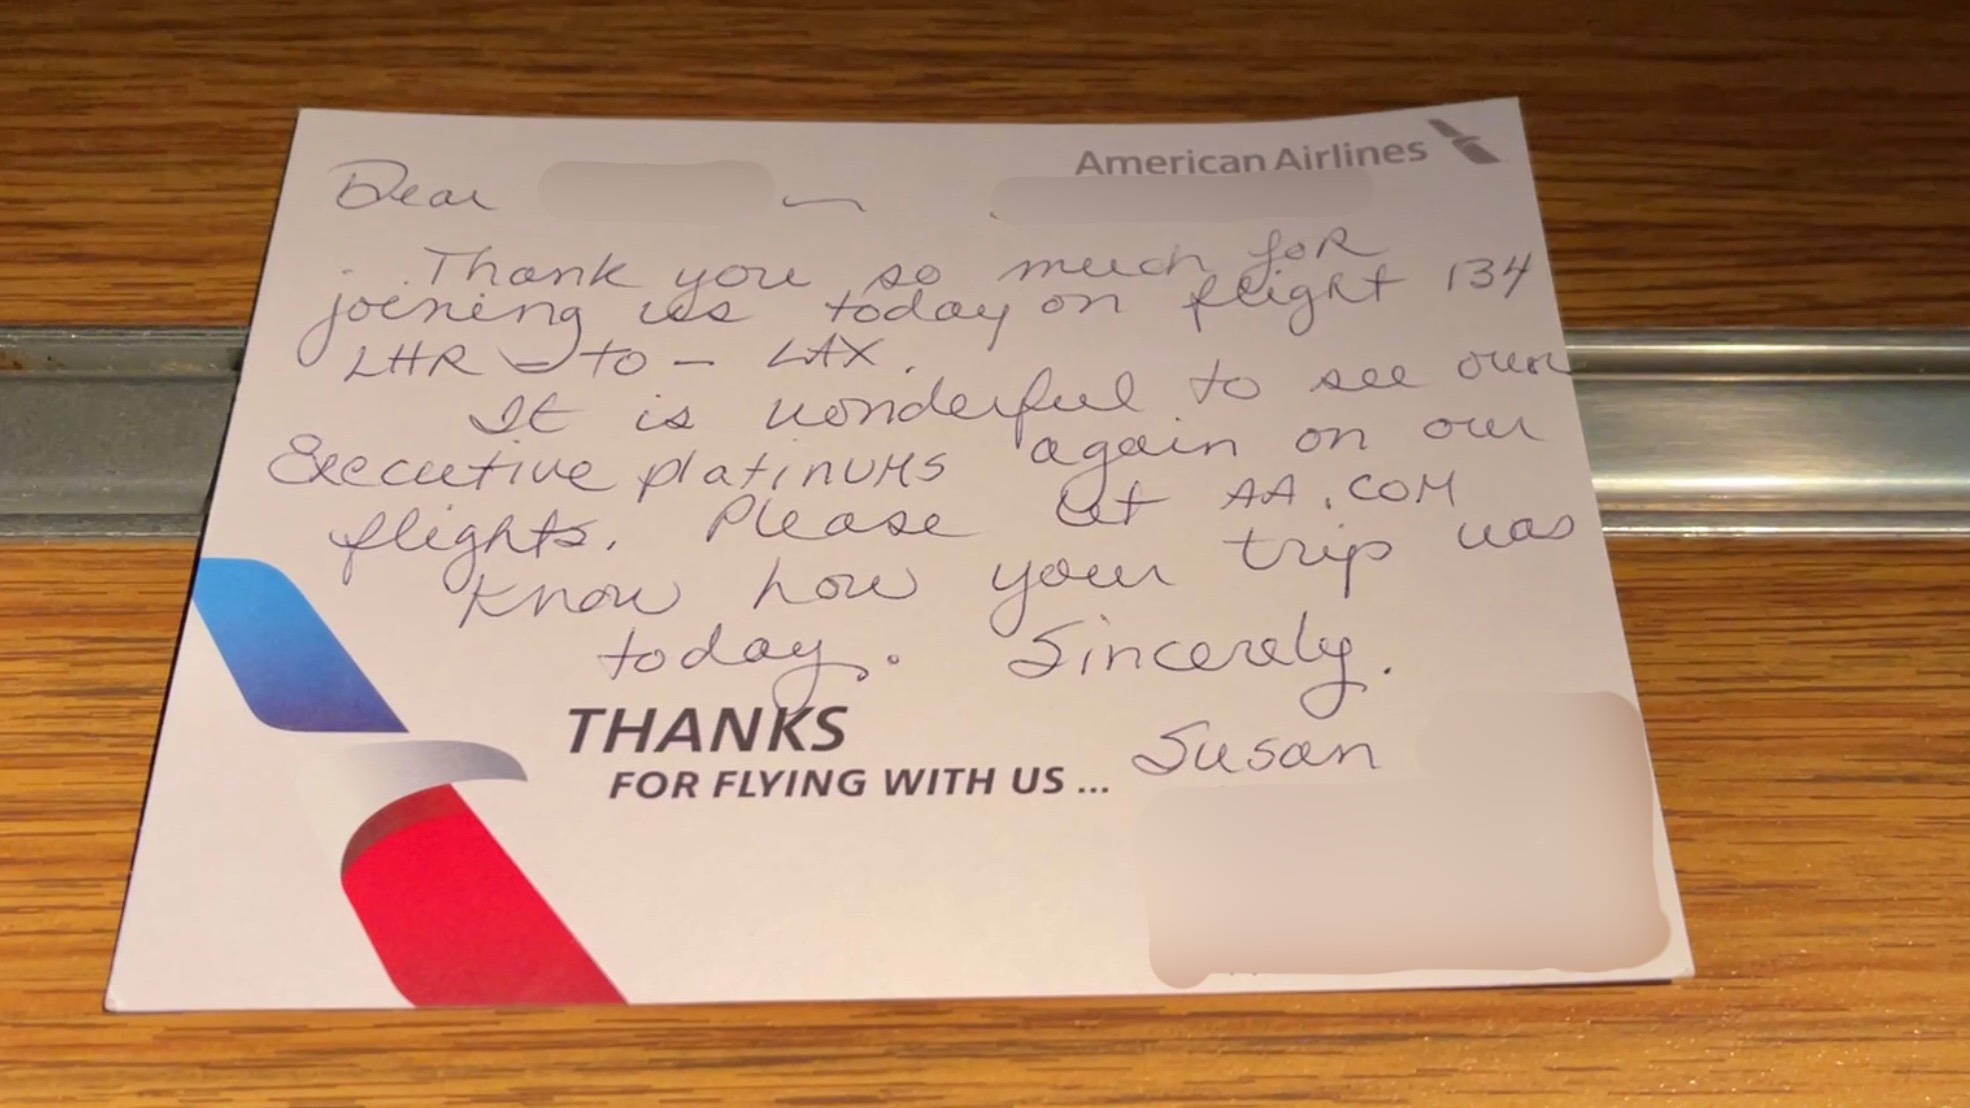 American Airlines
Dear
Thank you so much for
joining us today on flight 134
LHR - to - LAX.
It is wonderful to see our
Executive platinums again on our
flights. Please let AA.COM
know how your trip was
today. Sincerely.
Susan
THANKS
FOR FLYING WITH US ...